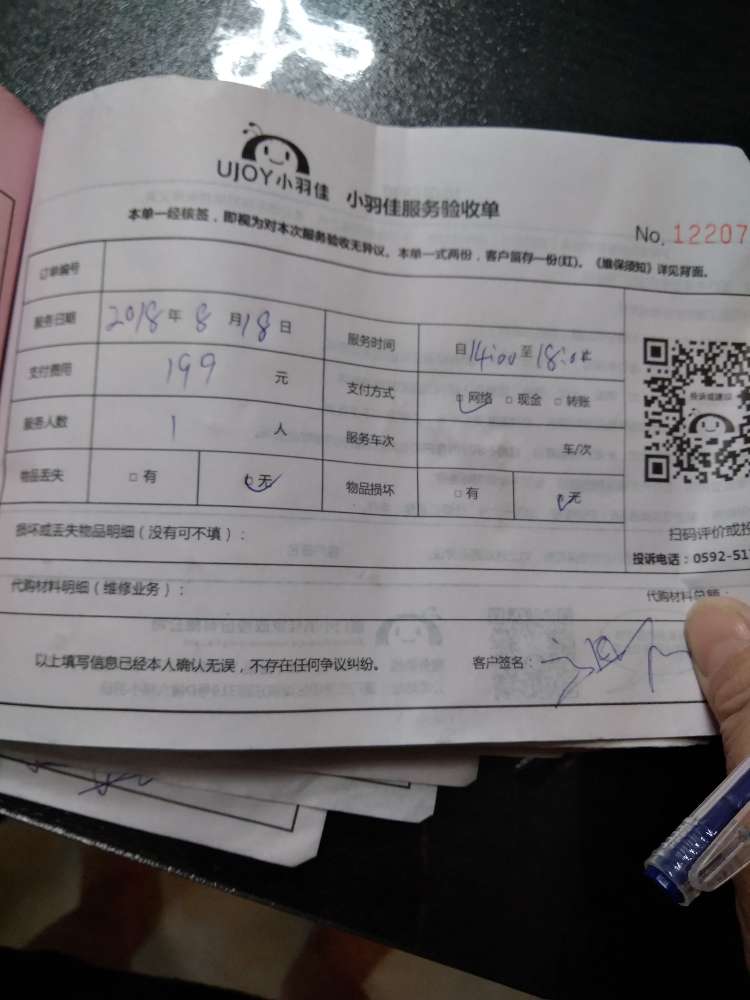 UJOY小羽佳 小羽佳服务验收单
No. 12207
本单一经核签，即视为对本次服务验收无异议。本单一式两份，客户留存一份(红)。《维保须知》详见背面。
订单编号
服务日期 2018年8月18日 服务时间 自14:00至18:00
支付费用 199 元 支付方式 □网络 □现金 □转账
服务人数 1 人 服务车次 车/次
物品丢失 □有 □无 物品损坏 □有 □无
投诉或建议
扫码评价或投
投诉电话：0592-51
损坏或丢失物品明细（没有可不填）：
代购材料明细（维修业务）： 代购材料总额：
以上填写信息已经本人确认无误，不存在任何争议纠纷。 客户签名：